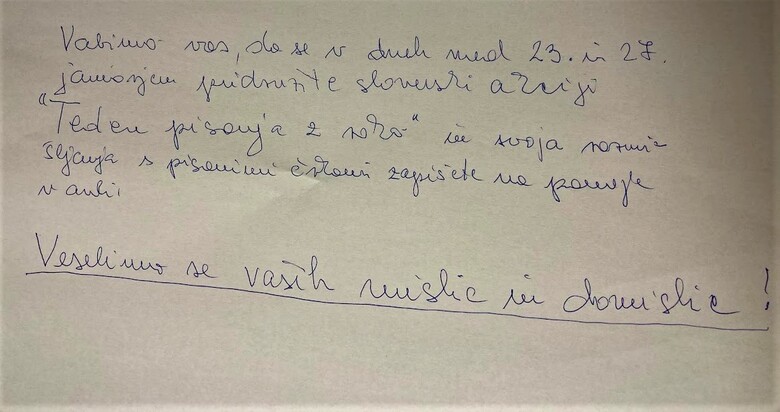 Vabimo vas, da se v dneh med 23. in 27.
januarjem pridružite slovenski akciji
"Teden pisanja z roko" in svoja razmi-
šljanja s pisanimi črkami zapišete na panoje
v avli.
Veselimo se vaših mislic in domislic!